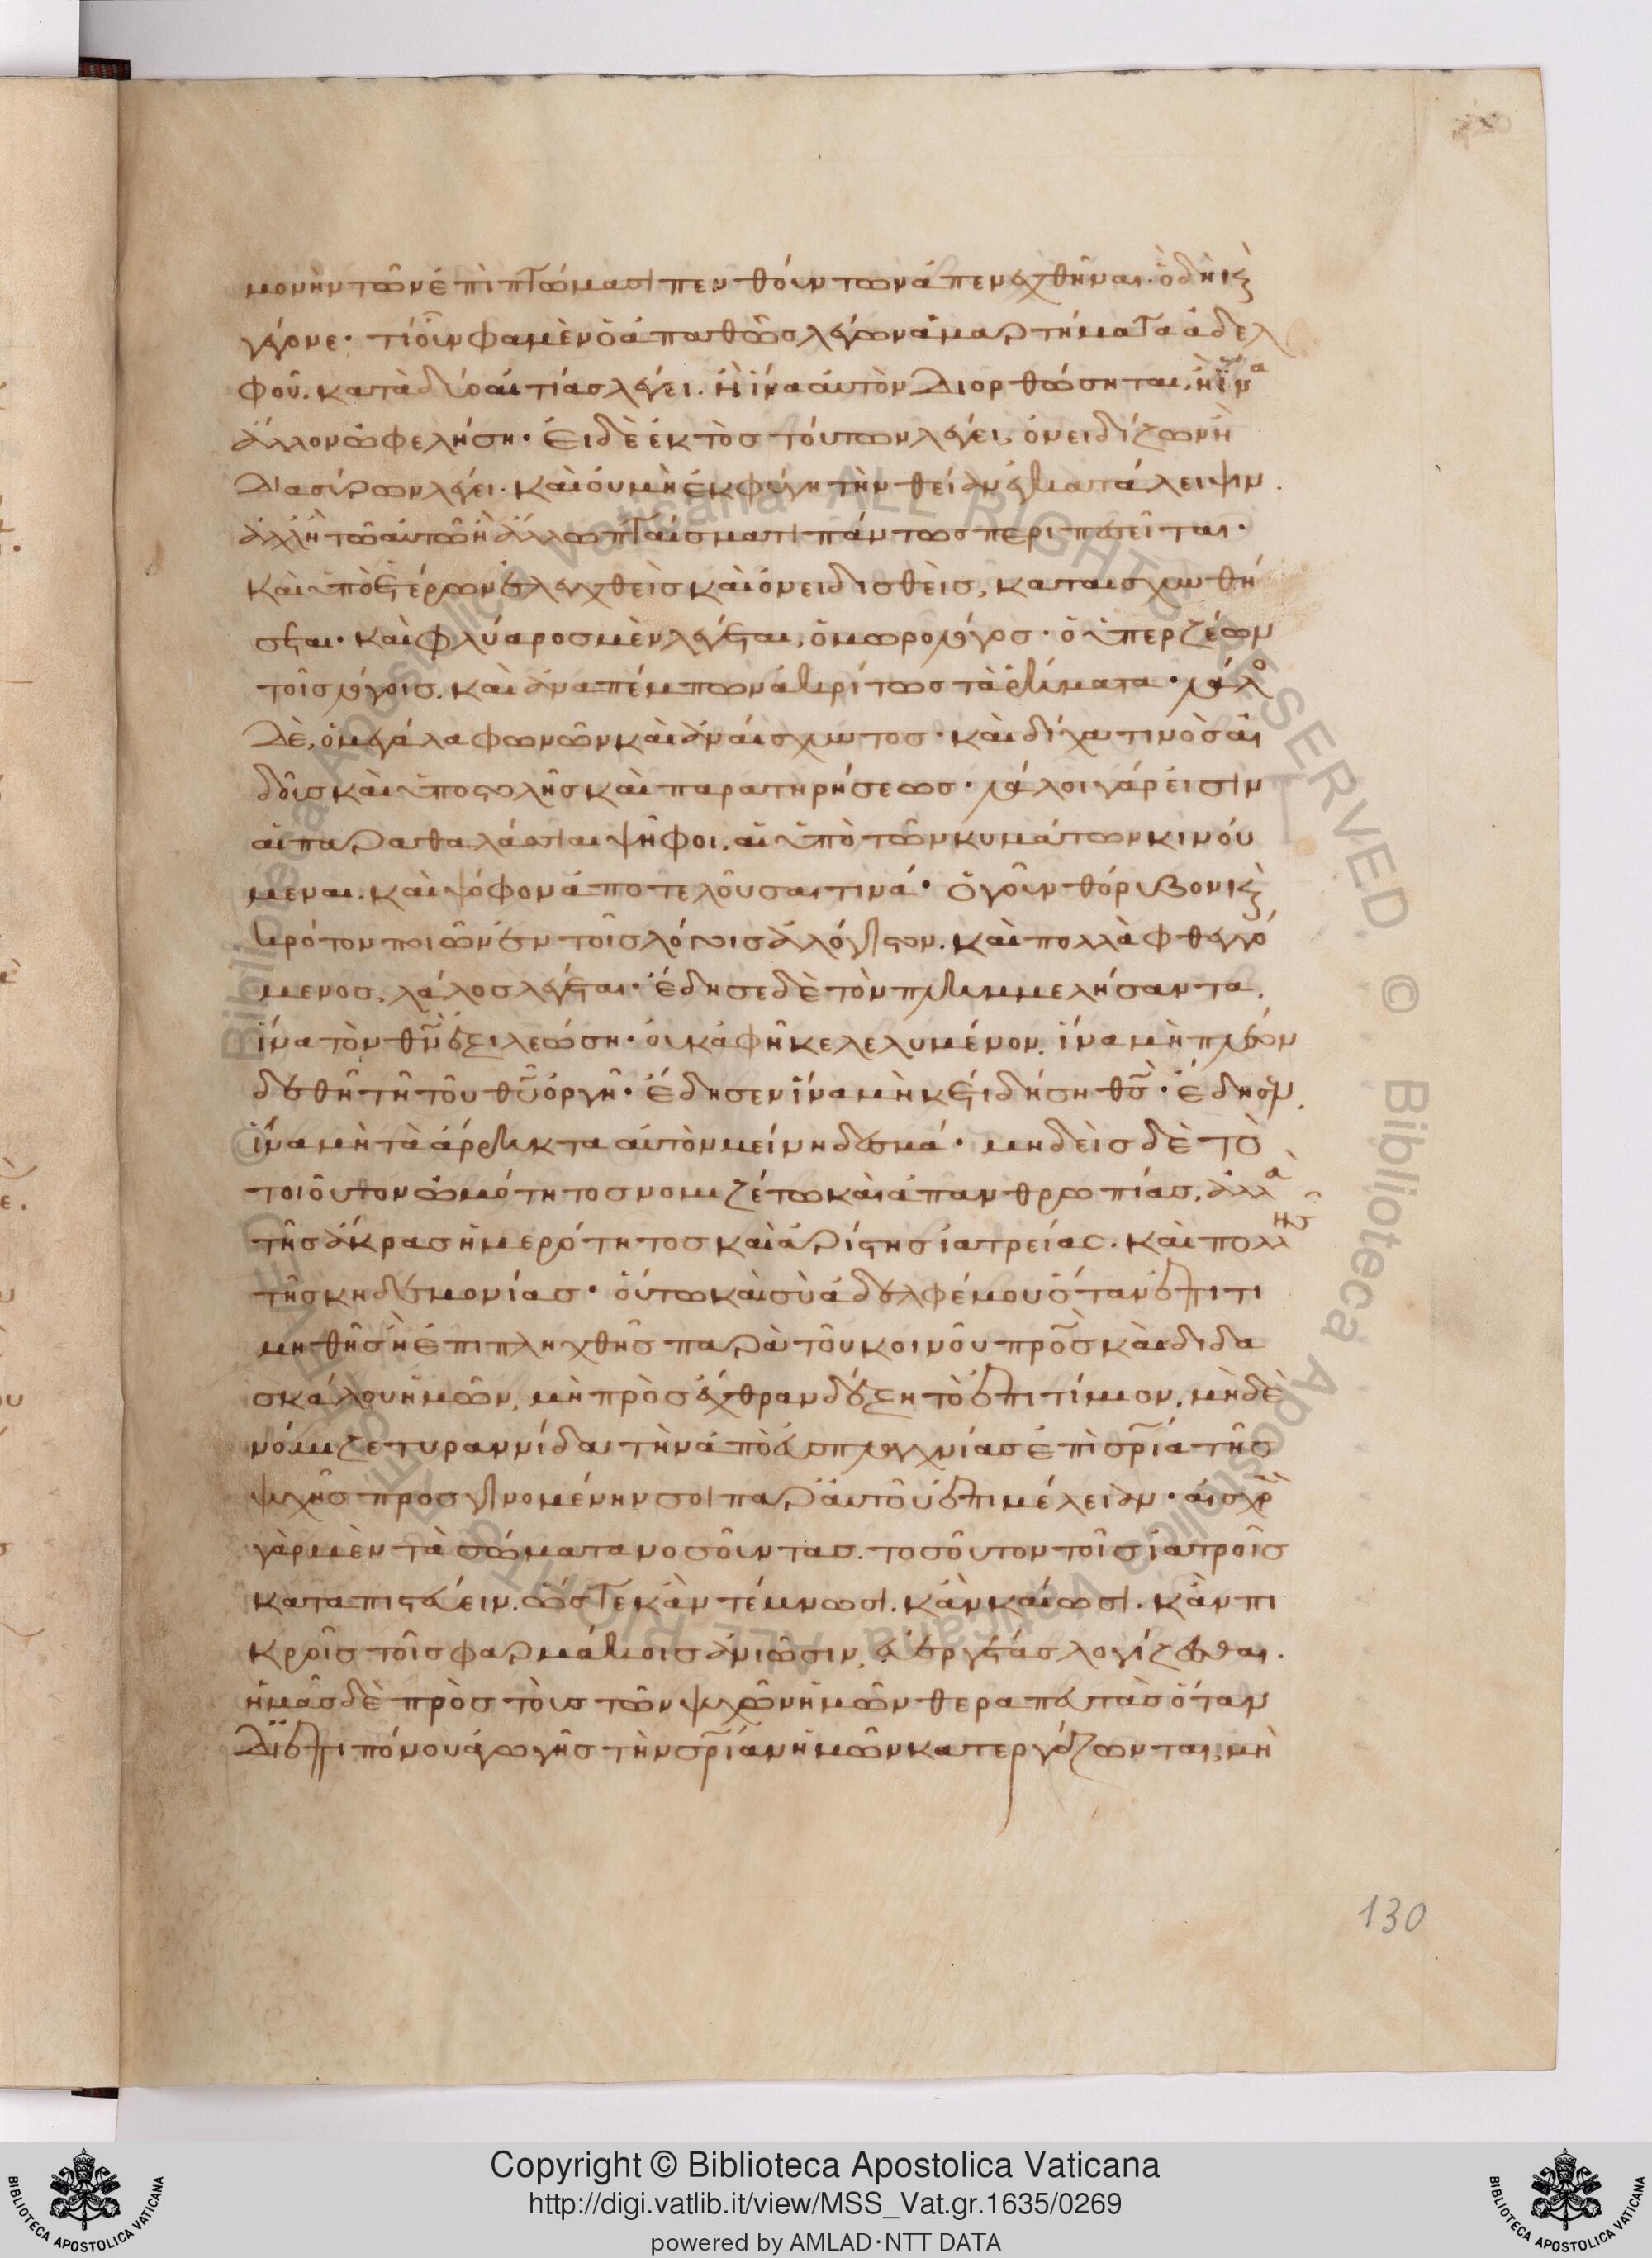 μονὴν τῶν ἐπὶ πτώμασι πενθούντων ἀπενεχθῆναι. ὃ δὴ κ(αὶ)
γέγονε. τί οὖν φαμὲν ὁ ἀπαθῶς λέγων ἁμαρτήματα ἀδελ
φοῦ. κατὰ δύο αἰτίας λέγει. ἢ ἵνα αὐτὸν διορθώσηται, ἢ ἵνα
ἄλλον ὠφελήση. εἰ δὲ ἐκτὸς τούτων λέγει, ὀνειδίζων ἢ
διασύρων λέγει. καὶ οὐ μὴ ἐκφύγη τὴν θείαν ἐγκατάλειψιν.
ἀλλ' ἢ τῶ αὐτῶ ἢ ἄλλω πταίσματι πάντως περιπεσεῖται.
καὶ ὑπὸ ἑτέρων ἐλεγχθεὶς καὶ ὀνειδισθεὶς, καταισχυνθή
σεται. καὶ φλύαρος μὲν λέγεται, ὁ μωρολόγος. ὁ ὑπερζέων
τοῖς λόγοις. καὶ ἀναπέμπων ἀκρίτως τὰ ῥήματα. λάλο
δὲ, ὁ μεγάλα φωνῶν καὶ ἀναίσχυντος. καὶ δίχα τινὸς αἰ
δοῦς καὶ ὑποστολῆς καὶ παρατηρήσεως. λάλοι γάρ εἰσιν
αἱ παραθαλάσσιαι ψῆφοι. αἱ ὑπὸ τῶν κυμάτων κινού
μεναι. καὶ ψόφον ἀποτελοῦσαι τινά. ὁ γοῦν θόρυβον κ(αὶ)
κρότον ποιῶν ἐν τοῖς λόγοις ἀλόγιστον. καὶ πολλὰ φθεγγό
μενος, λάλος λέγεται. ἔδησε δὲ τὸν πλημμελήσαντα,
ἵνα τὸν θν ἐξιλεώση. οὐκ ἀφῆκε λελυμένον, ἵνα μὴ πλέον
δεθῆ τῆ τοῦ θυ ὀργῆ. ἔδησεν ἵνα μὴ κἀκεῖ δήση θς. ἔδησεν,
ἵνα μὴ τὰ ἄρρηκτα αὐτὸν μείνη δεσμά. μηδεὶς δὲ τὸ
τοιοῦτον ὠμότητος νομιζέτω καὶ ἀπανθρωπίας, ἀλλὰ
τῆς ἄκρας ἡμερότητος καὶ ἀρίστης ἰατρείας. καὶ πολλῆς
τῆς κηδεμονίας. οὕτω καὶ σὺ ἀδελφέ μου ὅταν ἐπιτι
μηθῆς ἢ ἐπιπληχθῆς παρὰ τοῦ κοινοῦ προς καὶ διδα
σκάλου ἡμῶν, μὴ πρὸς ἔχθραν δέξη τὸ ἐπιτίμιον, μηδὲ
νόμιζε τυραννίδα τὴν ἀπὸ εὐσπλαγχνίας ἐπὶ σρία τῆς
ψυχῆς προσγινομένην σοι παρ' αὐτοῦ ἐπιμέλειαν. αἰσχρὸν
γὰρ μὲν τὰ σώματα νοσοῦντας. τοσοῦτον τοῖς ἰατροῖς
καταπιστεύειν. ὥστε κἂν τέμνωσι. κἂν καίωσι. κἂν πι
κροῖς τοῖς φαρμάκοις ἀνιῶσιν, εὐεργέτας λογίζεσθαι.
ἡμᾶς δὲ πρὸς τοὺς τῶν ψυχῶν ἡμῶν θεραπευτὰς ὅταν
δι' ἐπιπόνου ἀγωγῆς τὴν σρίαν ἡμῶν κατεργάζωνται, μὴ
130
Copyright © Biblioteca Apostolica Vaticana
http://digi.vatlib.it/view/MSS_Vat.gr.1635/0269
powered by AMLAD·NTT DATA